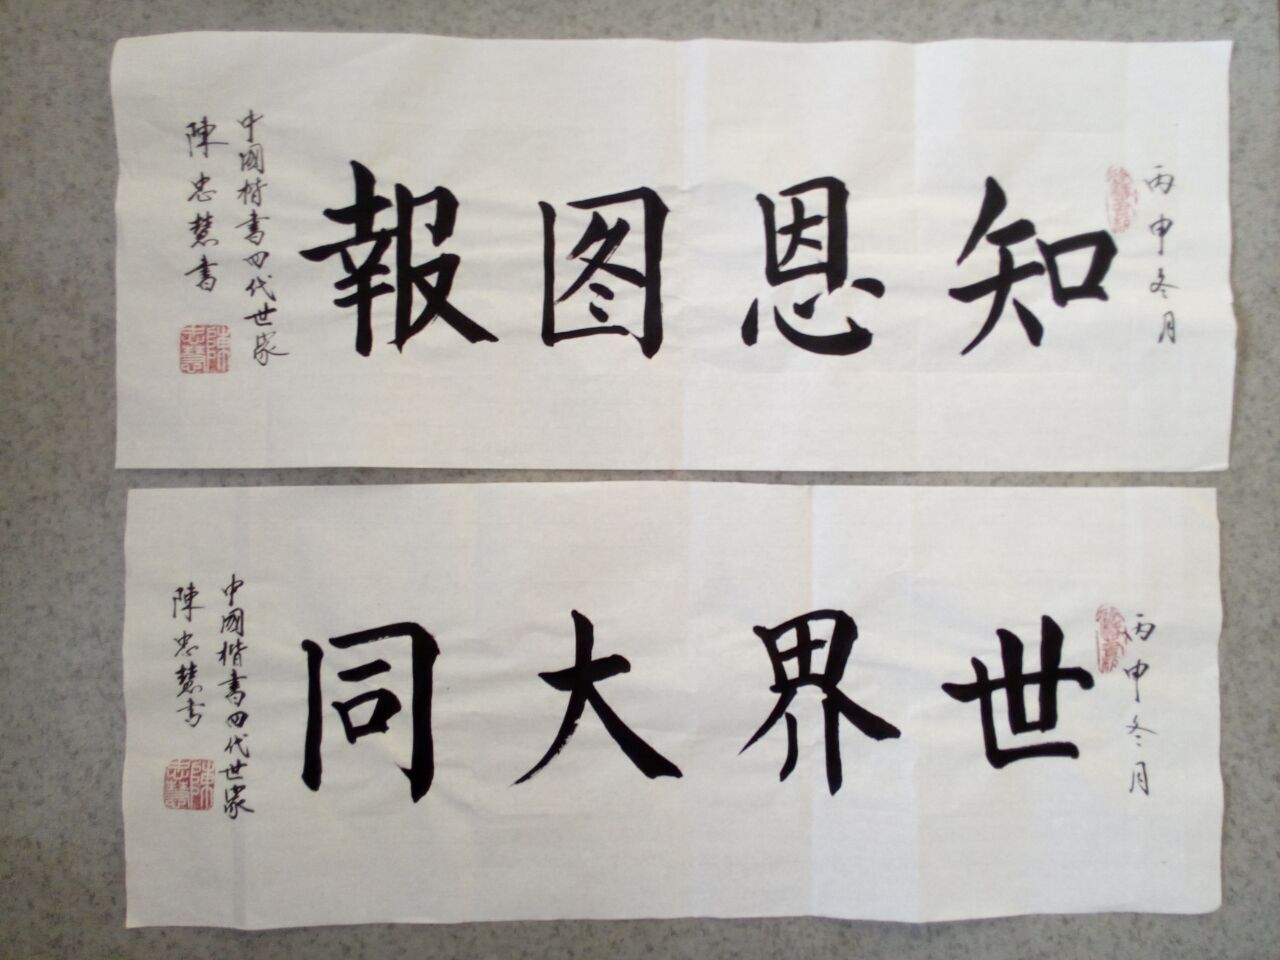 丙申冬月
知恩图報
中國楷書四代世家
陳忠慧書
陳忠慧
丙申冬月
世界大同
中國楷書四代世家
陳忠慧书
陳忠慧